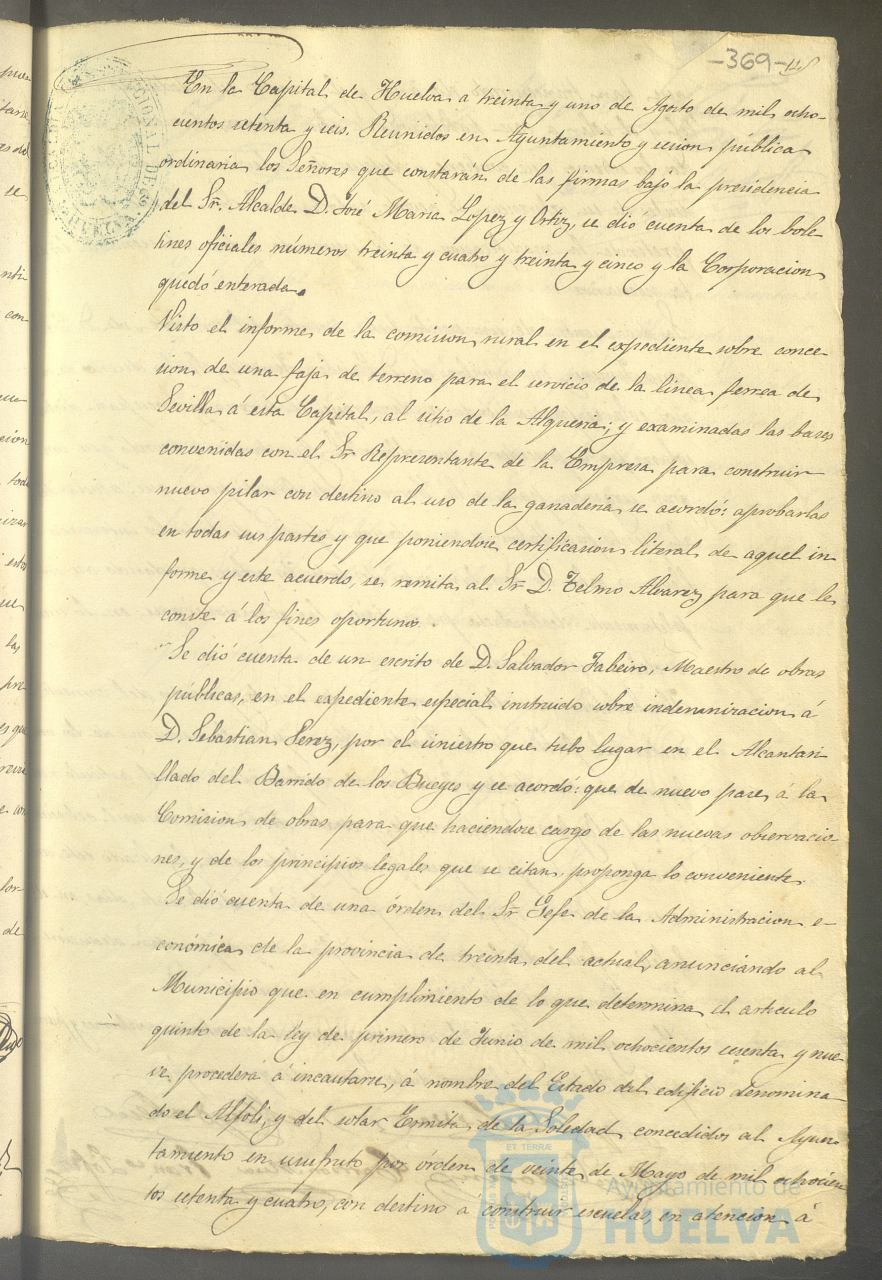 -369-
En la Capital de Huelva á treinta y uno de Agosto de mil ocho-
cientos setenta y seis. Reunidos en Ayuntamiento y sesion pública
ordinaria los Señores que constarán de las firmas bajo la presidencia
del Sr. Alcalde D. José Maria Lopez y Ortiz, se dió cuenta de los bole-
tines oficiales números treinta y cuatro y treinta y cinco y la Corporacion
quedó enterada.
Visto el informe de la comision rural en el expediente sobre conce-
sion de una faja de terreno para el servicio de la linea ferrea de
Sevilla á esta Capital, al sitio de la Alqueria; y examinadas las bases
convenidas con el Sr Representante de la Empresa para construir
nuevo pilar con destino al uso de la ganaderia se acordó: aprobarlas
en todas sus partes y que poniendose certificacion literal de aquel in-
forme y este acuerdo, se remita al Sr D. Telmo Alvarez para que le
conste á los fines oportunos.
Se dió cuenta de un escrito de D. Salvador Tabeiro, Maestro de obras
públicas, en el expediente especial instruido sobre indemnizacion á
D. Sebastian Perez, por el siniestro que tubo lugar en el Alcantari-
llado del Barrido de los Bueyes y se acordó: que de nuevo pase á la
Comision de obras para que haciendose cargo de las nuevas observacio-
nes, y de los principios legales que se citan, proponga lo conveniente.
Se dió cuenta de una órden del Sr Gefe de la Administracion e-
conómica de la provincia de treinta del actual, anunciando al
Municipio que en cumplimiento de lo que determina el articulo
quinto de la ley de primero de Junio de mil ochocientos sesenta y nue-
ve procederá á incautarse, á nombre del Estado del edificio denomina-
do el Alfoli, y del solar Ermita de la Soledad, concedidos al Ayun-
tamiento en usufruto por órden de veinte de Mayo de mil ochocien
tos setenta y cuatro, con destino á construir escuelas, en atencion á
Ayuntamiento de
HUELVA